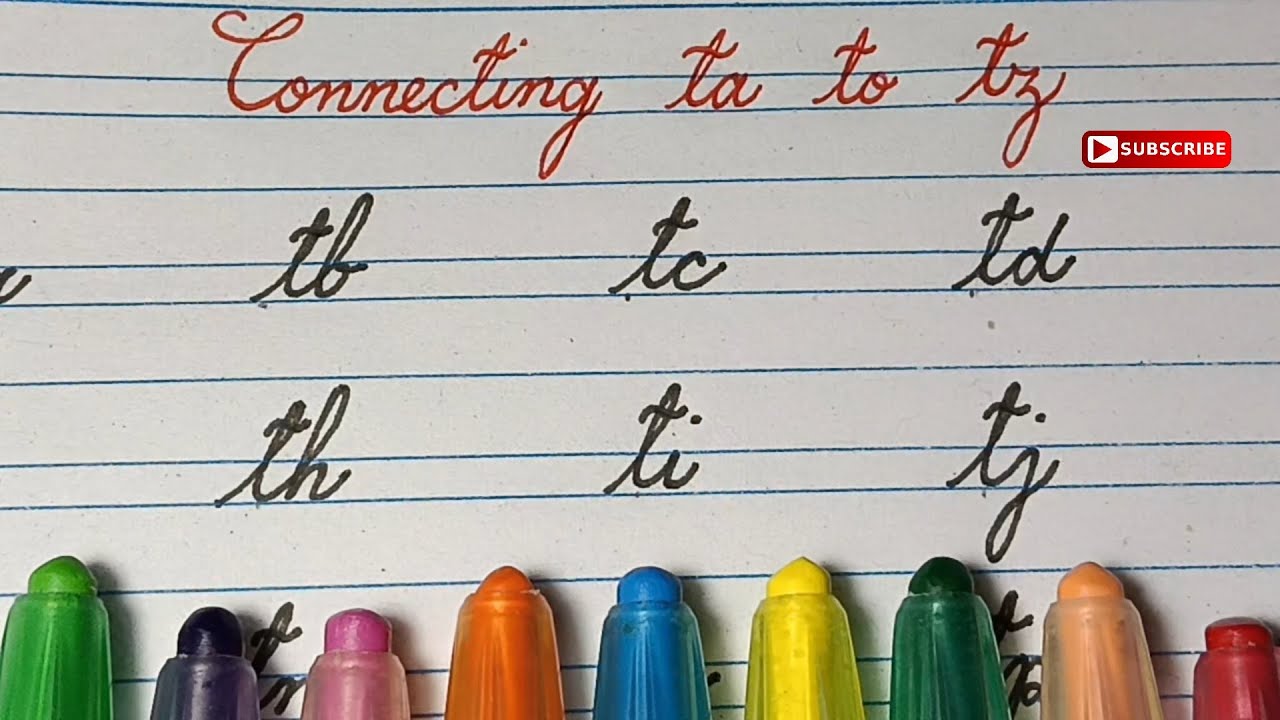 Connecting ta to tz
SUBSCRIBE
tb tc td
th ti tj